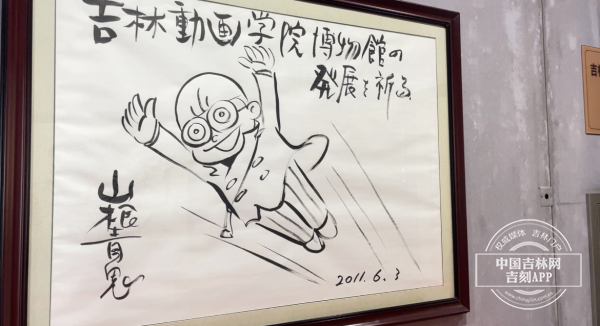 吉林動画学院博物館の
発展を祈る
山根青鬼
2011.6.3
吉
权威媒体 吉林门户
中国吉林网
吉刻APP